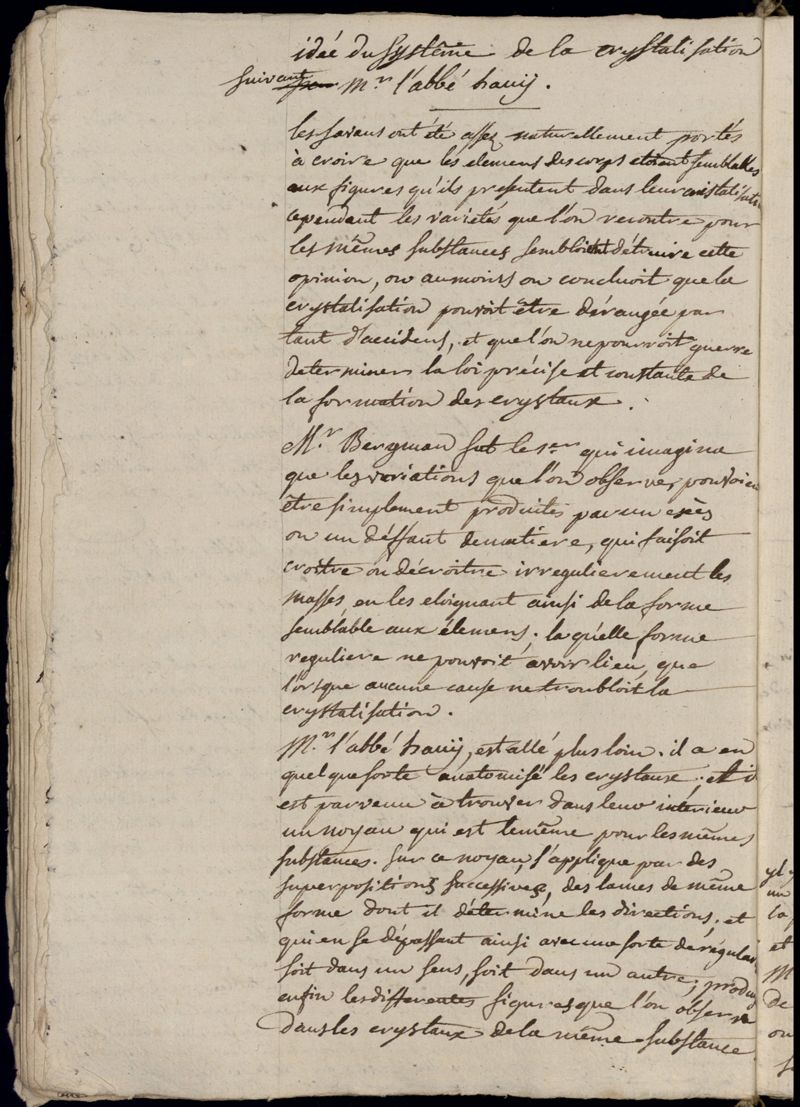 idée du Systême de la crystalisation
suivant Mr. l'abbé hauij.
les savans ont été assez naturellement portés
à croire que les elemens des corps etoient semblables
aux figures qu'ils presentent dans leur cristalisation
cependant les varietés que l'on rencontre pour
les mêmes substances sembloient détruire cette
opinion, ou aumoins on concluoit que la
crystalisation pouvoit être dérangée par
tant d'accidens, et que l'on ne pourroit guerre
determiner la loi précise et constante de
la formation des crystaux.
Mr. Bergman fut le 1er qui imagina
que les variations que l'on observe, pouvoient
être simplement produites par un excès
ou un déffaut de matiere, qui faisoit
croitre ou décroitre irregulierement les
masses, en les eloignant ainsi de la forme
semblable aux élemens. la quelle forme
reguliere ne pouvoit avoir lieu, que
lorsque aucune cause ne troubloit la
crystalisation.
Mr. l'abbé hauij, est allé plus loin. il a en
quelque sorte anatomisé les crystaux; et il
est parvenu à trouver dans leur interieur
un noyau qui est le même pour les mêmes
substances. sur ce noyau, s'applique par des
superpositions successives, des lames de même
forme dont il détermine les directions, et
qui en se dépassant ainsi avec une sorte de régular
soit dans un sens, soit dans un autre; produis
enfin les differentes figures que l'on observe
dans les crystaux de la même substance